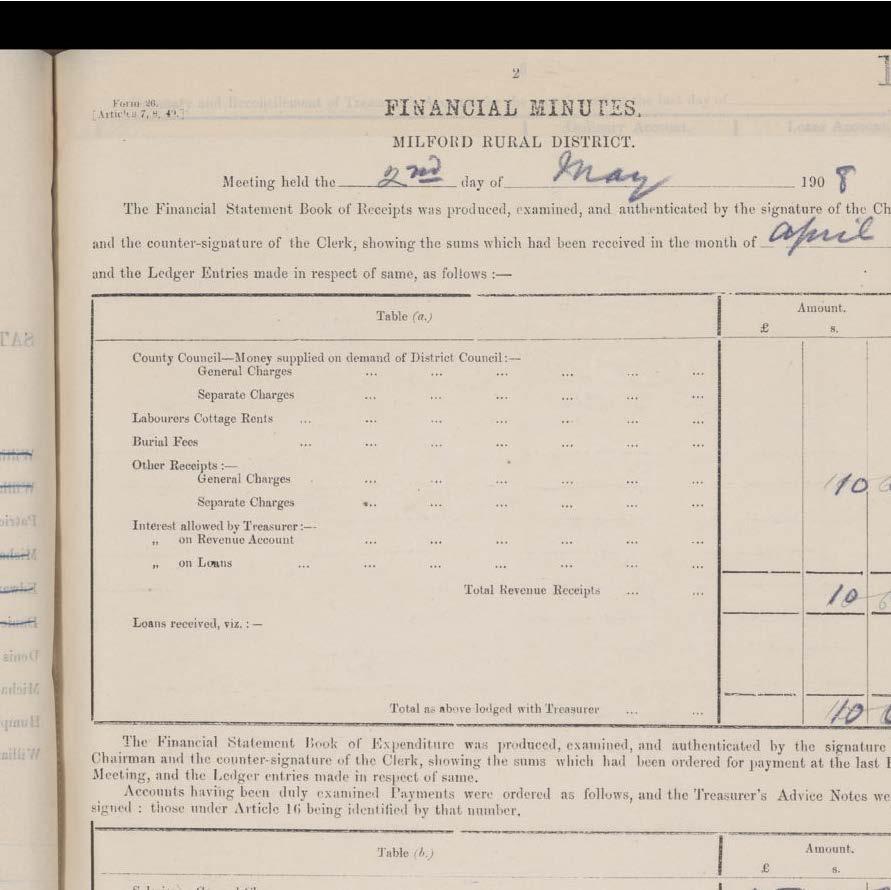 2
Form 26.
[Articles 7, 8, 49.]
FINANCIAL MINUTES.
MILFORD RURAL DISTRICT.
Meeting held the 2nd day of May 1908
The Financial Statement Book of Receipts was produced, examined, and authenticated by the signature of the Ch
and the counter-signature of the Clerk, showing the sums which had been received in the month of April
and the Ledger Entries made in respect of same, as follows :—
Table (a.) Amount.
£ s.
County Council—Money supplied on demand of District Council :—
General Charges ... ... ... ... ... ...
Separate Charges ... ... ... ... ... ...
Labourers Cottage Rents ... ... ... ... ... ... ...
Burial Fees ... ... ... ... ... ... ...
Other Receipts :—
General Charges ... ... ... ... ... ... 10 6
Separate Charges ... ... ... ... ... ...
Interest allowed by Treasurer :—
„ on Revenue Account ... ... ... ... ... ...
„ on Loans ... ... ... ... ... ... ...
Total Revenue Receipts ... ... 10 6
Loans received, viz. : —
Total as above lodged with Treasurer ... ... 10 6
The Financial Statement Book of Expenditure was produced, examined, and authenticated by the signature
Chairman and the counter-signature of the Clerk, showing the sums which had been ordered for payment at the last
Meeting, and the Ledger entries made in respect of same.
Accounts having been duly examined Payments were ordered as follows, and the Treasurer's Advice Notes we
signed : those under Article 16 being identified by that number.
Table (b.) Amount.
£ s.